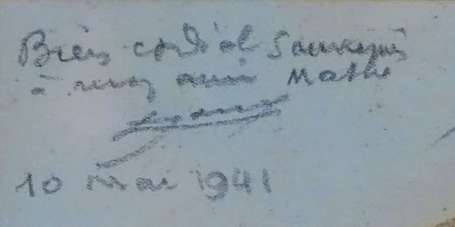 Bien cordial souvenir
à mon ami Mathe
10 mai 1941